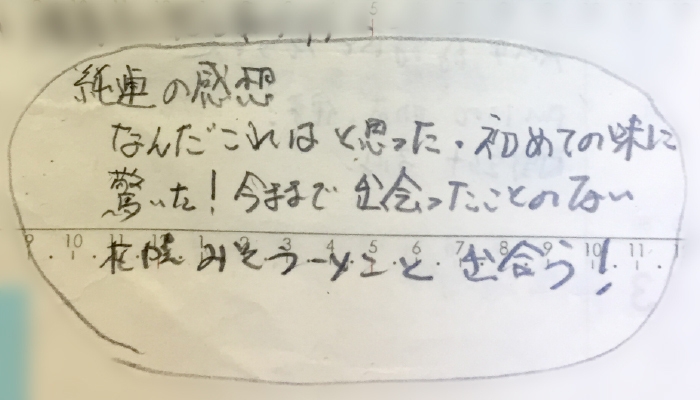 純連の感想
なんだこれはと思った。初めての味に
驚いた!今まで出会ったことのない
9 10 11 12 1 2 3 4 5 6 7 8 9 10 11 1
札幌みそラーメンと出会う!